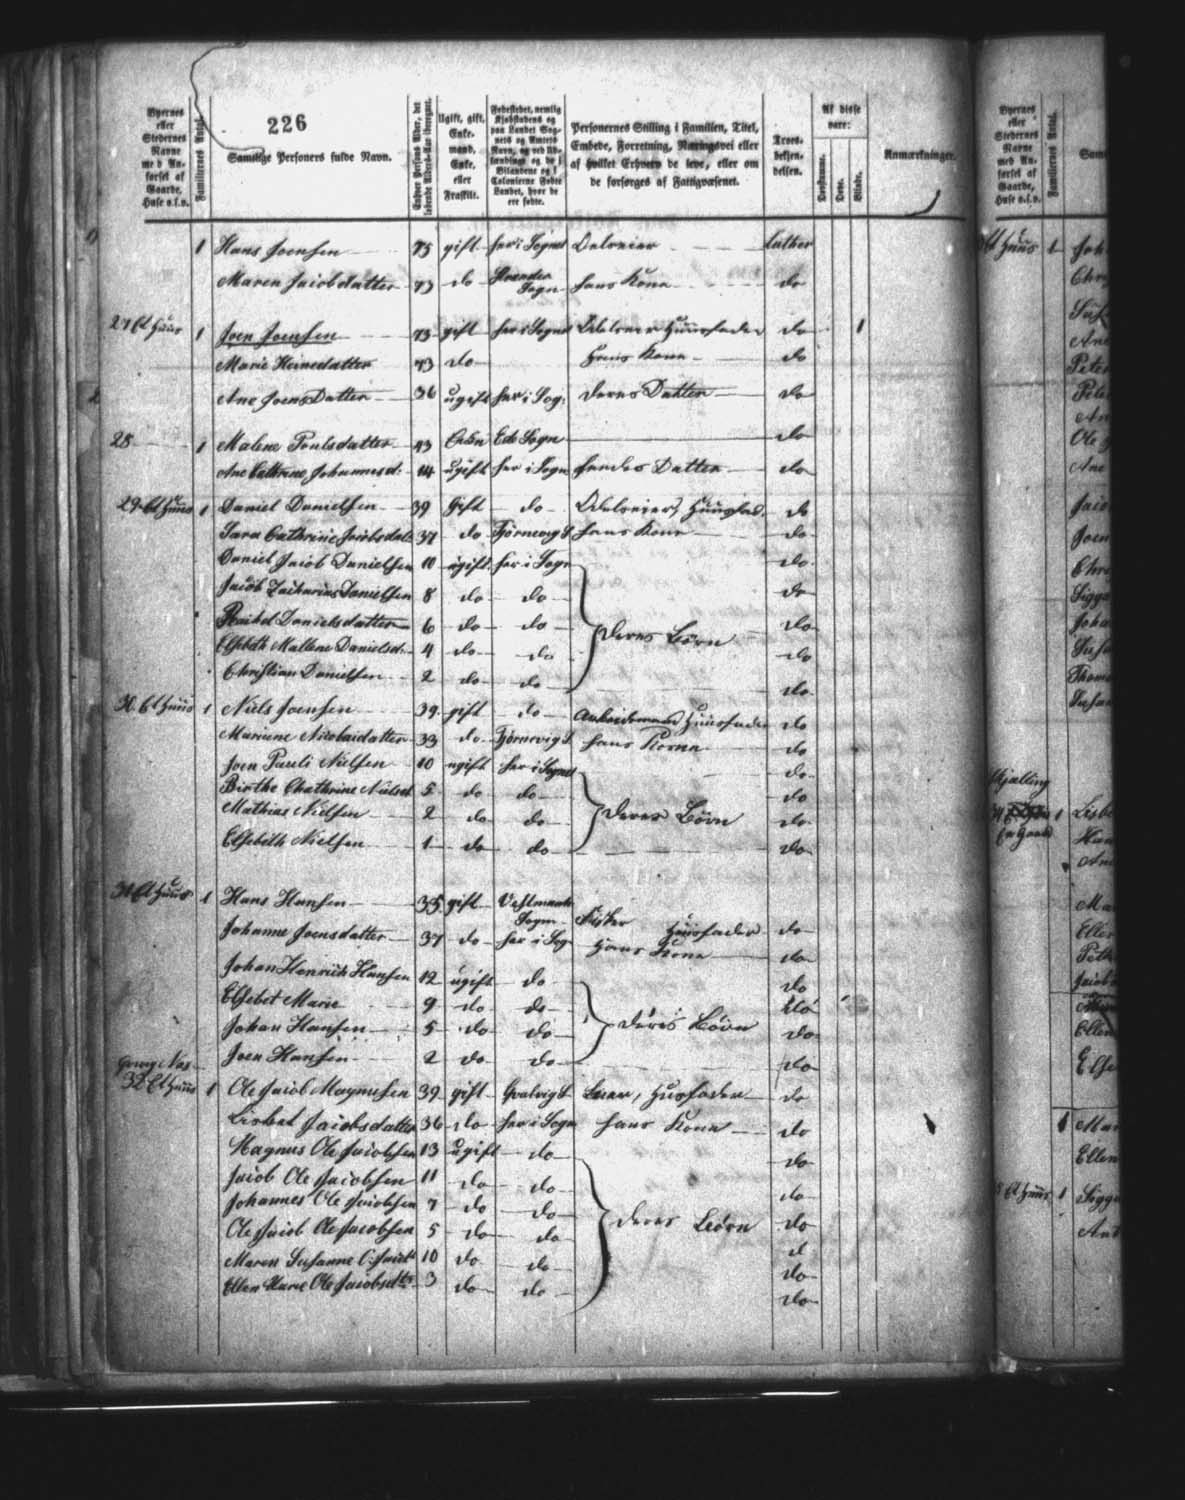 226
Byernes eller Stedernes Navne med Anførsel af Gaarde, Huse o.s.v.
Familiernes Antal.
Samtlige Personers fulde Navn.
Enhver Persons Alder, det løbende Alders-Aar iberegnet.
Ugift, gift, Enkemand, Enke, eller Fraskilt.
Fødestedet, nemlig Kjøbstadens og paa Landet Sognets og Amtets Navn, og ved Udlændinge og de i Bilandene og i Colonierne Fødte Landet, hvor de ere fødte.
Personernes Stilling i Familien, Titel, Embede, Forretning, Næringsvei eller af hvilket Erhverv de leve, eller om de forsørges af Fattigvæsenet.
Troesbekjendelsen.
Af disse vare:
Døvstumme.
Døve.
Blinde.
Anmærkninger.
1 Hans Joensen 75 gift her i Sognet Odelseier luther
Maren Jacobsdatter 73 do Sogn hans Kone do
27 Et Huus 1 Joen Joensen 73 gift her i Sognet Odelseier Huusfader do 1
Marie Heinesdatter 73 do Hans Kone do
Ane Joens Datter 36 ugift her i Sog: deres Datter do
28 1 Malene Poulsdatter 43 Enke Ede Sogn do
Ane Cathrine Johannesd: 14 ugift her i Sogn hendes Datter do
29 Et Huus 1 Daniel Danielsen 39 Gift do Odelseier, Huusfad. do
Sara Cathrine Jacobsdat: 37 do Tjørnevig S hans Kone do
Daniel Jacob Danielsen 10 ugift her i Sogn do
Jacob Zacharias Danielsen 8 do do do
Rachel Danielsdatter 6 do do deres Børn do
Elsebeth Mallene Danielsd. 4 do do do
Christian Danielsen 2 do do do
30 Et Huus 1 Niels Joensen 39 gift do Arbeidsmand Huusfader do
Mariane Nicolaidatter 33 do Tjørnevig S hans Kone do
Joen Pauli Nielsen 10 ugift her i Sognet do
Birthe Chathrine Nielsd 5 do do do
Mathias Nielsen 2 do do deres Børn do
Elsebeth Nielsen 1 do do do
31 Et Huus 1 Hans Hansen 35 gift Vestmanh Sogn Fisker Huusfader do
Johanne Joensdatter 37 do her i Sog Hans Kone do
Johan Henrich Hansen 12 ugift do do
Elsebet Marie 9 do do do
Johan Hansen 5 do do deres Børn do
Joen Hansen 2 do do do
32 Et Huus 1 Ole Jacob Magnusen 39 gift Qvalvig S Huusfader do
Lisbet Jacobsdatter 36 do her i Sogn hans Kone do
Magnus Ole Jacobsen 13 ugift do do
Jacob Ole Jacobsen 11 do do do
Johannes Ole Jacobsen 7 do do deres Børn do
Ole Jacob Ole Jacobsen 5 do do d
Maren Susanne O: Jacobd 10 do do do
Ellen Marie Ole Jacobsdtr 3 do do do
Byernes eller Stedernes Navne med Anførsel af Gaarde, Huse o.s.v.
Familiernes Antal.
Et Huus 1
Peter
Ane
Ole
Ane
Thomas
En Gaard 1
Ellen
Ellen
1
Ellen
Et Huus 1 Sigga